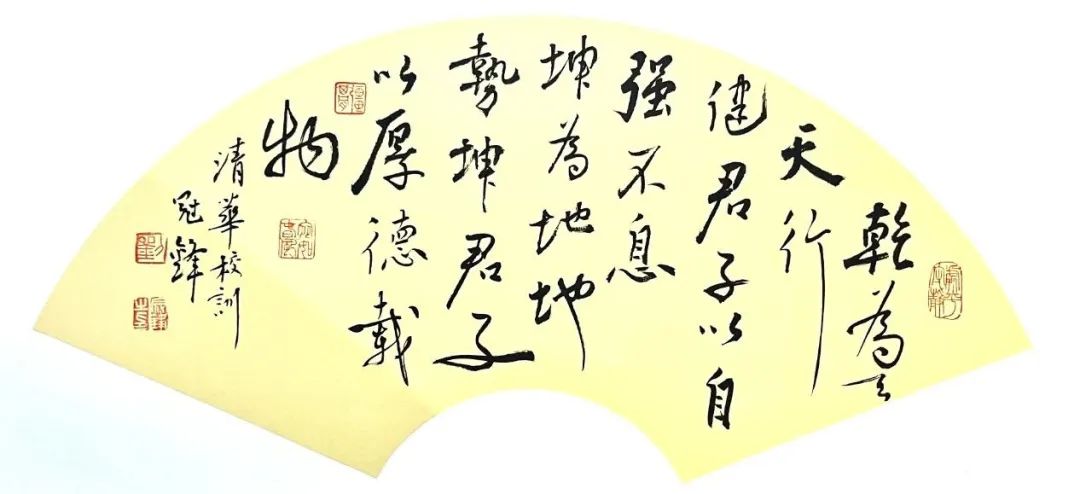 乾為天
天行
健君子以自
强不息
坤為地地
勢坤君子
以厚德載
物
清華校訓
冠鋒